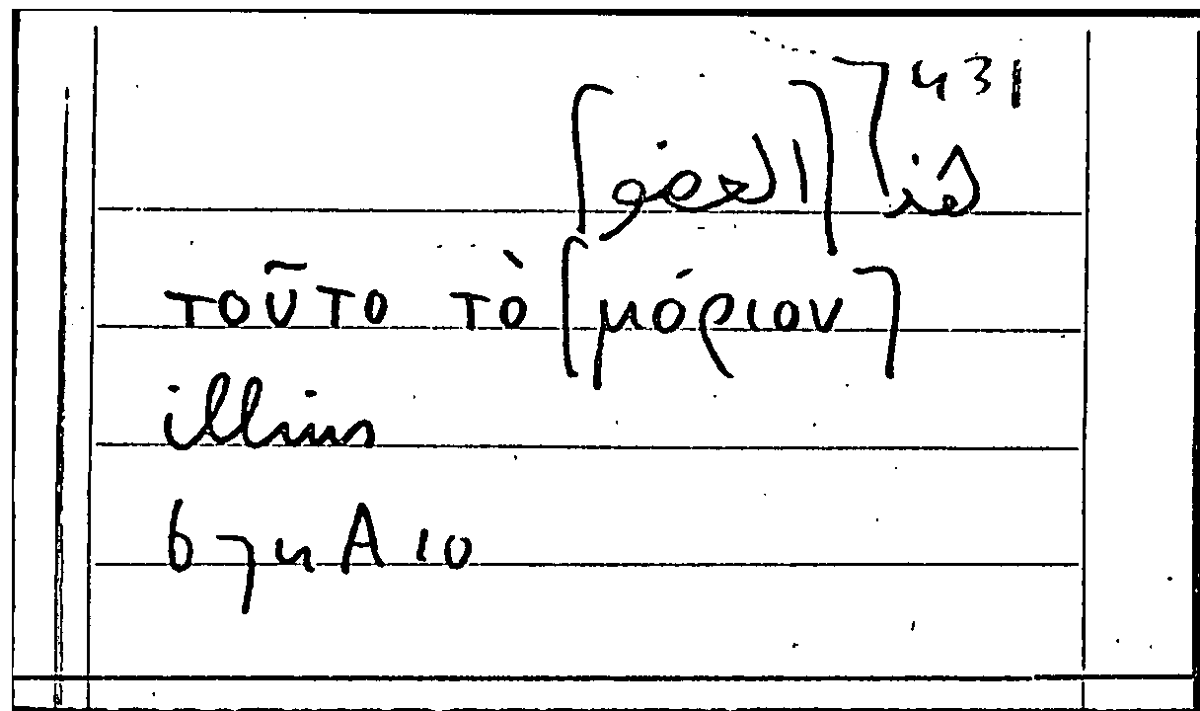 431
هذا [العضو]
τοῦτο τὸ [μόριον]
illius
674 A 10